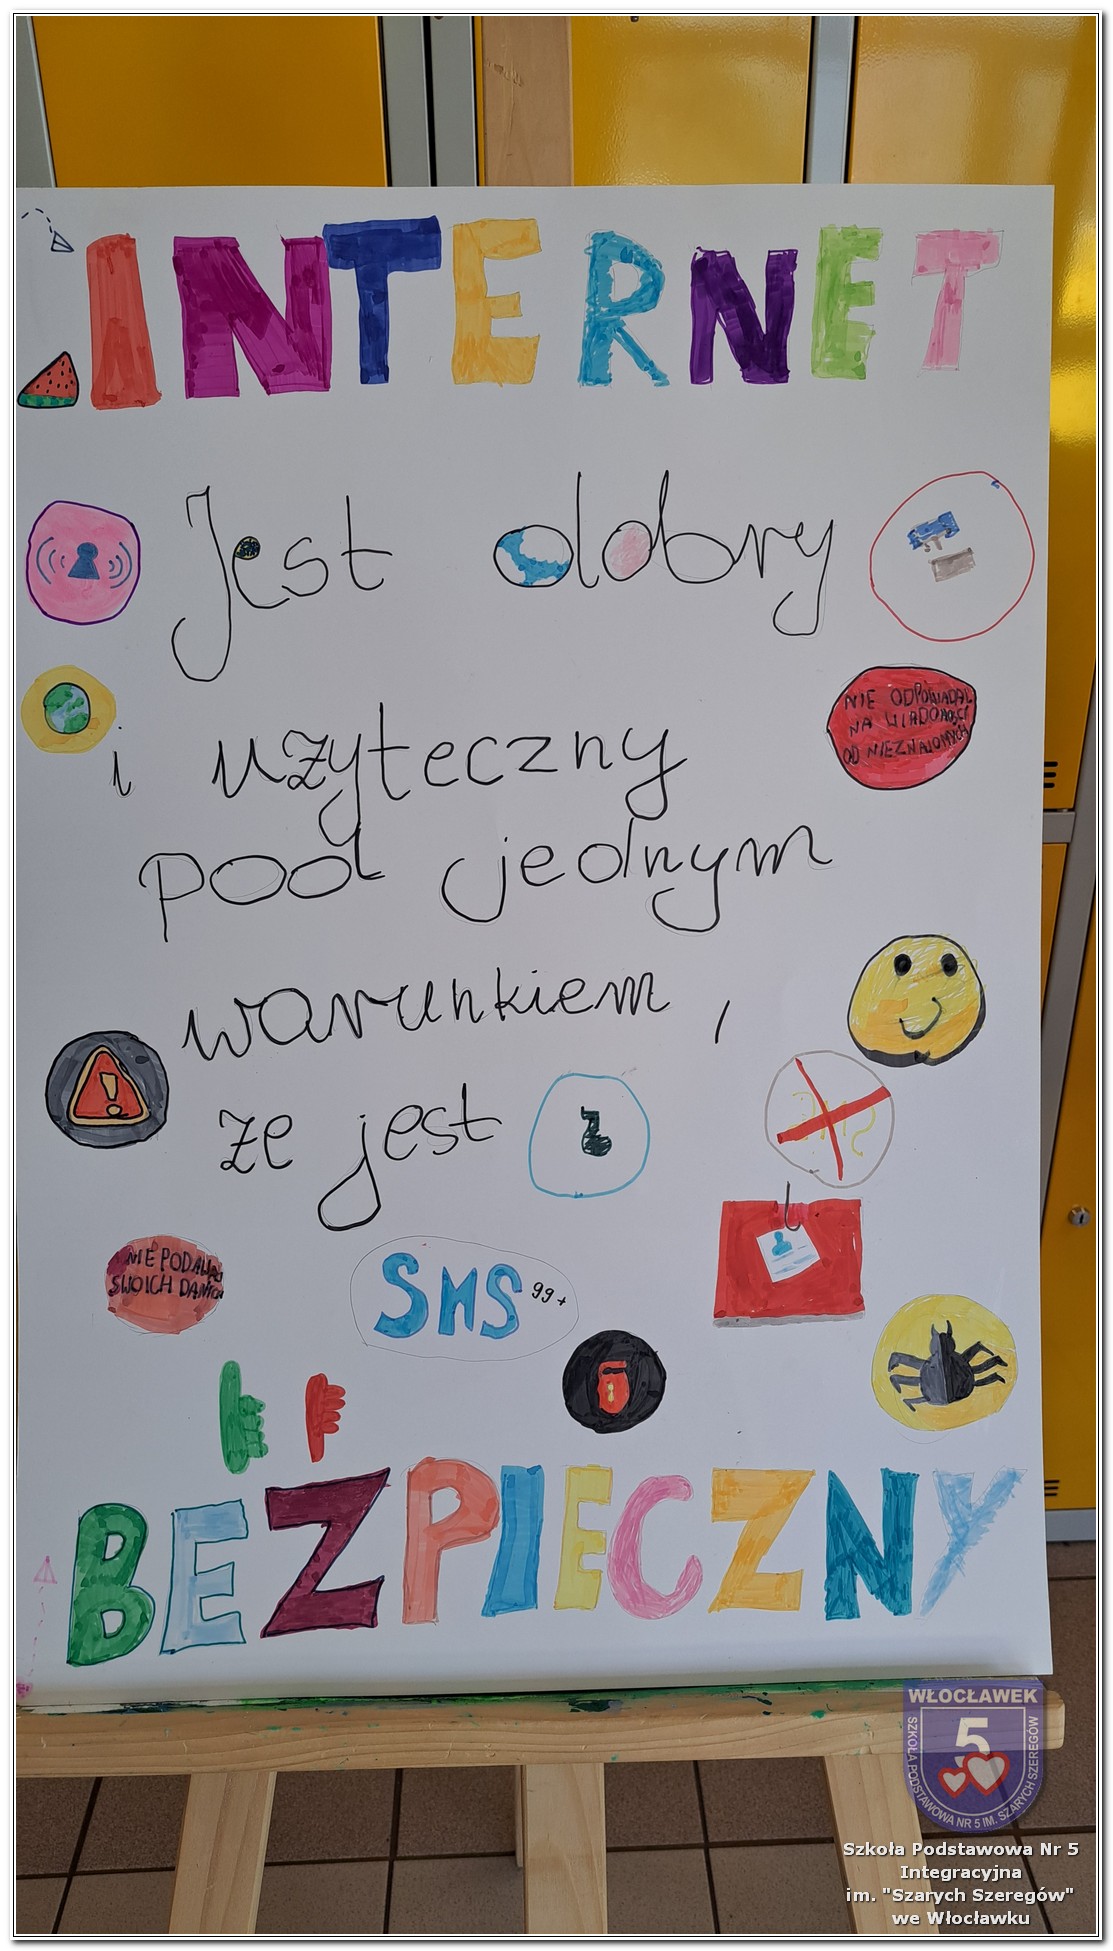 INTERNET
Jest dobry
i użyteczny
NIE ODPOWIADAJ
NA WIADOMOŚCI
OD NIEZNAJOMYCH
pod jednym
warunkiem,
że jest
SMS
NIE PODAWAJ
SWOICH DANYCH
SMS 99+
BEZPIECZNY
WŁOCŁAWEK
5
SZKOŁA PODSTAWOWA NR 5 IM. SZARYCH SZEREGÓW
Szkoła Podstawowa Nr 5
Integracyjna
im. "Szarych Szeregów"
we Włocławku